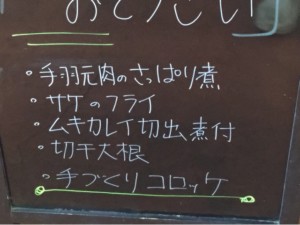 ・手羽元肉のさっぱり煮
・サケのフライ
・ムキカレイ切出煮付
・切干大根
・手づくりコロッケ